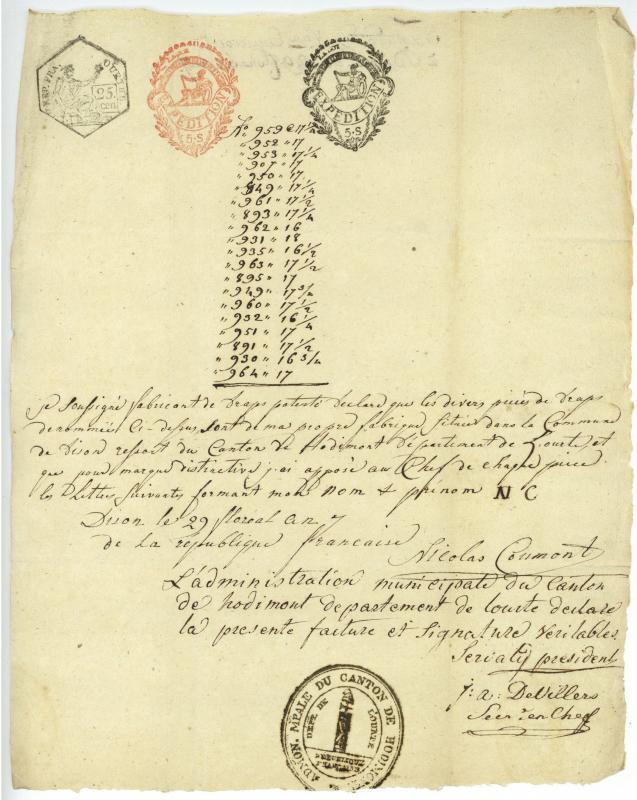 REP. FRA.
OURTHE
25
cen
EXPEDITION
5·S
EXPEDITION
5·S
No 959 @ 17 1/4
" 952 " 17
" 953 " 17 1/4
" 907 " 17
" 950 " 17
" 849 " 17 1/4
" 961 " 17 1/2
" 893 " 17 1/4
" 962 " 16
" 931 " 18
" 935 " 16 1/2
" 963 " 17 1/2
" 895 " 17
" 949 " 17 3/4
" 960 " 17 1/2
" 932 " 16 1/4
" 951 " 17
" 891 " 17 1/2
" 930 " 16 3/4
" 964 " 17
je soussigné fabricant de draps patenté déclare que les divers pièces de draps
denommées Ci-dessus sont de ma propre fabrique située dans la Commune
de Dison ressort du Canton de Hodimont Département de Lourte, et
que pour marque distinctive j'ai apposé au Chef de chaque pièce
les Lettres Suivants formant mon Nom & prénom N C
Dison le 29 floreal an 7
de la republique francaise
Nicolas Coumont
L'administration municipale du Canton
de hodimont departement de Lourte declare
la presente facture et signature veritables
president
j: a: DeVillers
Secr. en Chef
ADMON. MPALE DU CANTON DE HODIMONT
DEPT. DE LOURTE
REPUBLIQUE
FRANCAISE